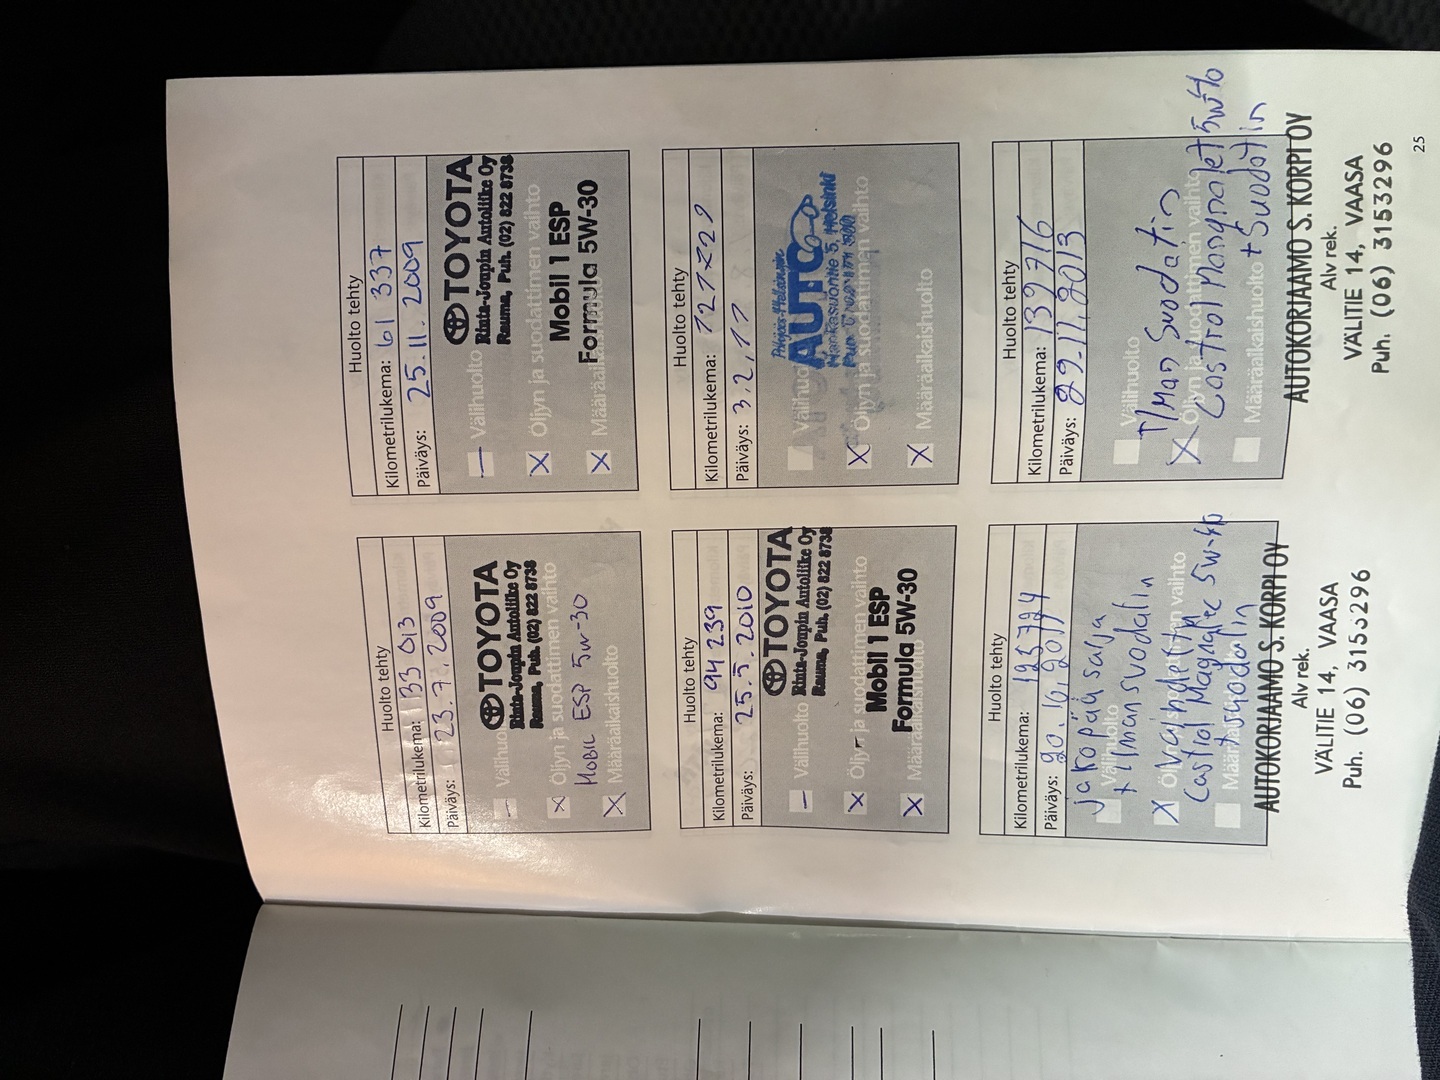 Huolto tehty
Kilometrilukema: 33 013
Päiväys: 23.7.2009
Välihuolto
TOYOTA
Rinta-Joupin Autoliike Oy
Rauma, Puh. (02) 822 8738
Öljyn ja suodattimen vaihto
MOBIL ESP 5W-30
Määräaikaishuolto
Huolto tehty
Kilometrilukema: 61 337
Päiväys: 25.11.2009
Välihuolto
TOYOTA
Rinta-Joupin Autoliike Oy
Rauma, Puh. (02) 822 8738
Öljyn ja suodattimen vaihto
Mobil 1 ESP
Formula 5W-30
Määräaikaishuolto
Huolto tehty
Kilometrilukema: 94 239
Päiväys: 25.5.2010
Välihuolto
TOYOTA
Rinta-Joupin Autoliike Oy
Rauma, Puh. (02) 822 8738
Öljyn ja suodattimen vaihto
Mobil 1 ESP
Formula 5W-30
Määräaikaishuolto
Huolto tehty
Kilometrilukema:
Päiväys: 3.2.11
Välihuolto
AUTO
Öljyn ja suodattimen vaihto
Määräaikaishuolto
Huolto tehty
Kilometrilukema: 123724
Päiväys:
jakopään sarja
Välihuolto
+ ilman suodatin
vaihto
Castrol Magnatec 5W-40
+ suodatin
AUTOKORJAAMO S. KORPI OY
Alv rek.
VÄLITIE 14, VAASA
Puh. (06) 3153296
Huolto tehty
Kilometrilukema: 139716
Päiväys: 29.11.2013
Välihuolto
ilman suodatin
Öljyn ja suodattimen vaihto
Castrol Magnatec 5W40
Määräaikaishuolto
+ suodatin
AUTOKORJAAMO S. KORPI OY
Alv rek.
VÄLITIE 14, VAASA
Puh. (06) 3153296
25